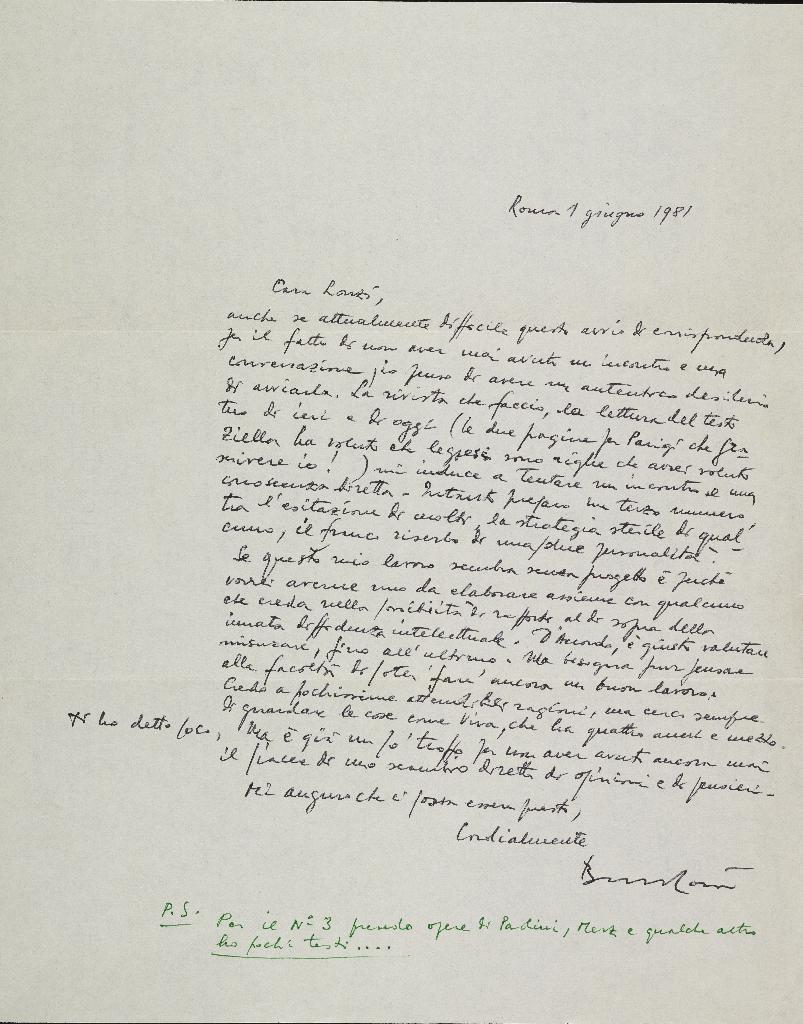 Roma 1 giugno 1981
Cara Lonzi,
anche se attualmente difficile questo avvio di corrispondenza,
per il fatto di non aver mai avuto un incontro e una
conversazione, io penso di avere un autentico desiderio
di avviarla. La rivista che faccio, la lettura del testo
tuo di ieri e di oggi (le due pagine per Parigi che Gra-
ziella ha voluto che leggessi sono righe che avrei voluto
scrivere io! ) mi induce a tentare un incontro e una
conoscenza diretta - Intanto preparo un terzo numero
tra l'esitazione di molti, la strategia sterile di qual-
cuno, il franco riserbo di una/due personalità.
Se questo mio lavoro sembra senza progetto è perché
vorrei averne uno da elaborare assieme con qualcuno
che creda nella possibilità di rapporto al di sopra della
innata diffidenza intellettuale. D'accordo, è giusto valutare
misurare, fino all'ultimo. Ma bisogna pur pensare
alla facoltà di poter 'fare' ancora un buon lavoro.
Credo a pochissime attendibili ragioni, ma cerco sempre
di guardare le cose come Viva, che ha quattro anni e mezzo.
Ti ho detto poco, Ma è già un po' troppo per non aver avuto ancora mai
il piacere di uno scambio diretto di opinioni e di pensieri -
Mi auguro che ci possa essere presto,
Cordialmente
P.S. Per il N° 3 prendo opere di Paolini, Merz e qualche altro
ho pochi testi....